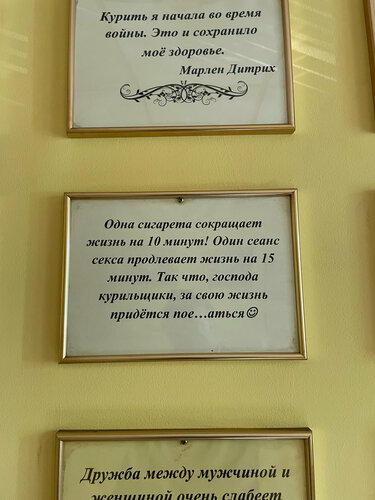 Курить я начала во время
войны. Это и сохранило
моё здоровье.
Марлен Дитрих
Одна сигарета сокращает
жизнь на 10 минут! Один сеанс
секса продлевает жизнь на 15
минут. Так что, господа
курильщики, за свою жизнь
придётся пое…аться☺
Дружба между мужчиной и
женщиной очень слабеет